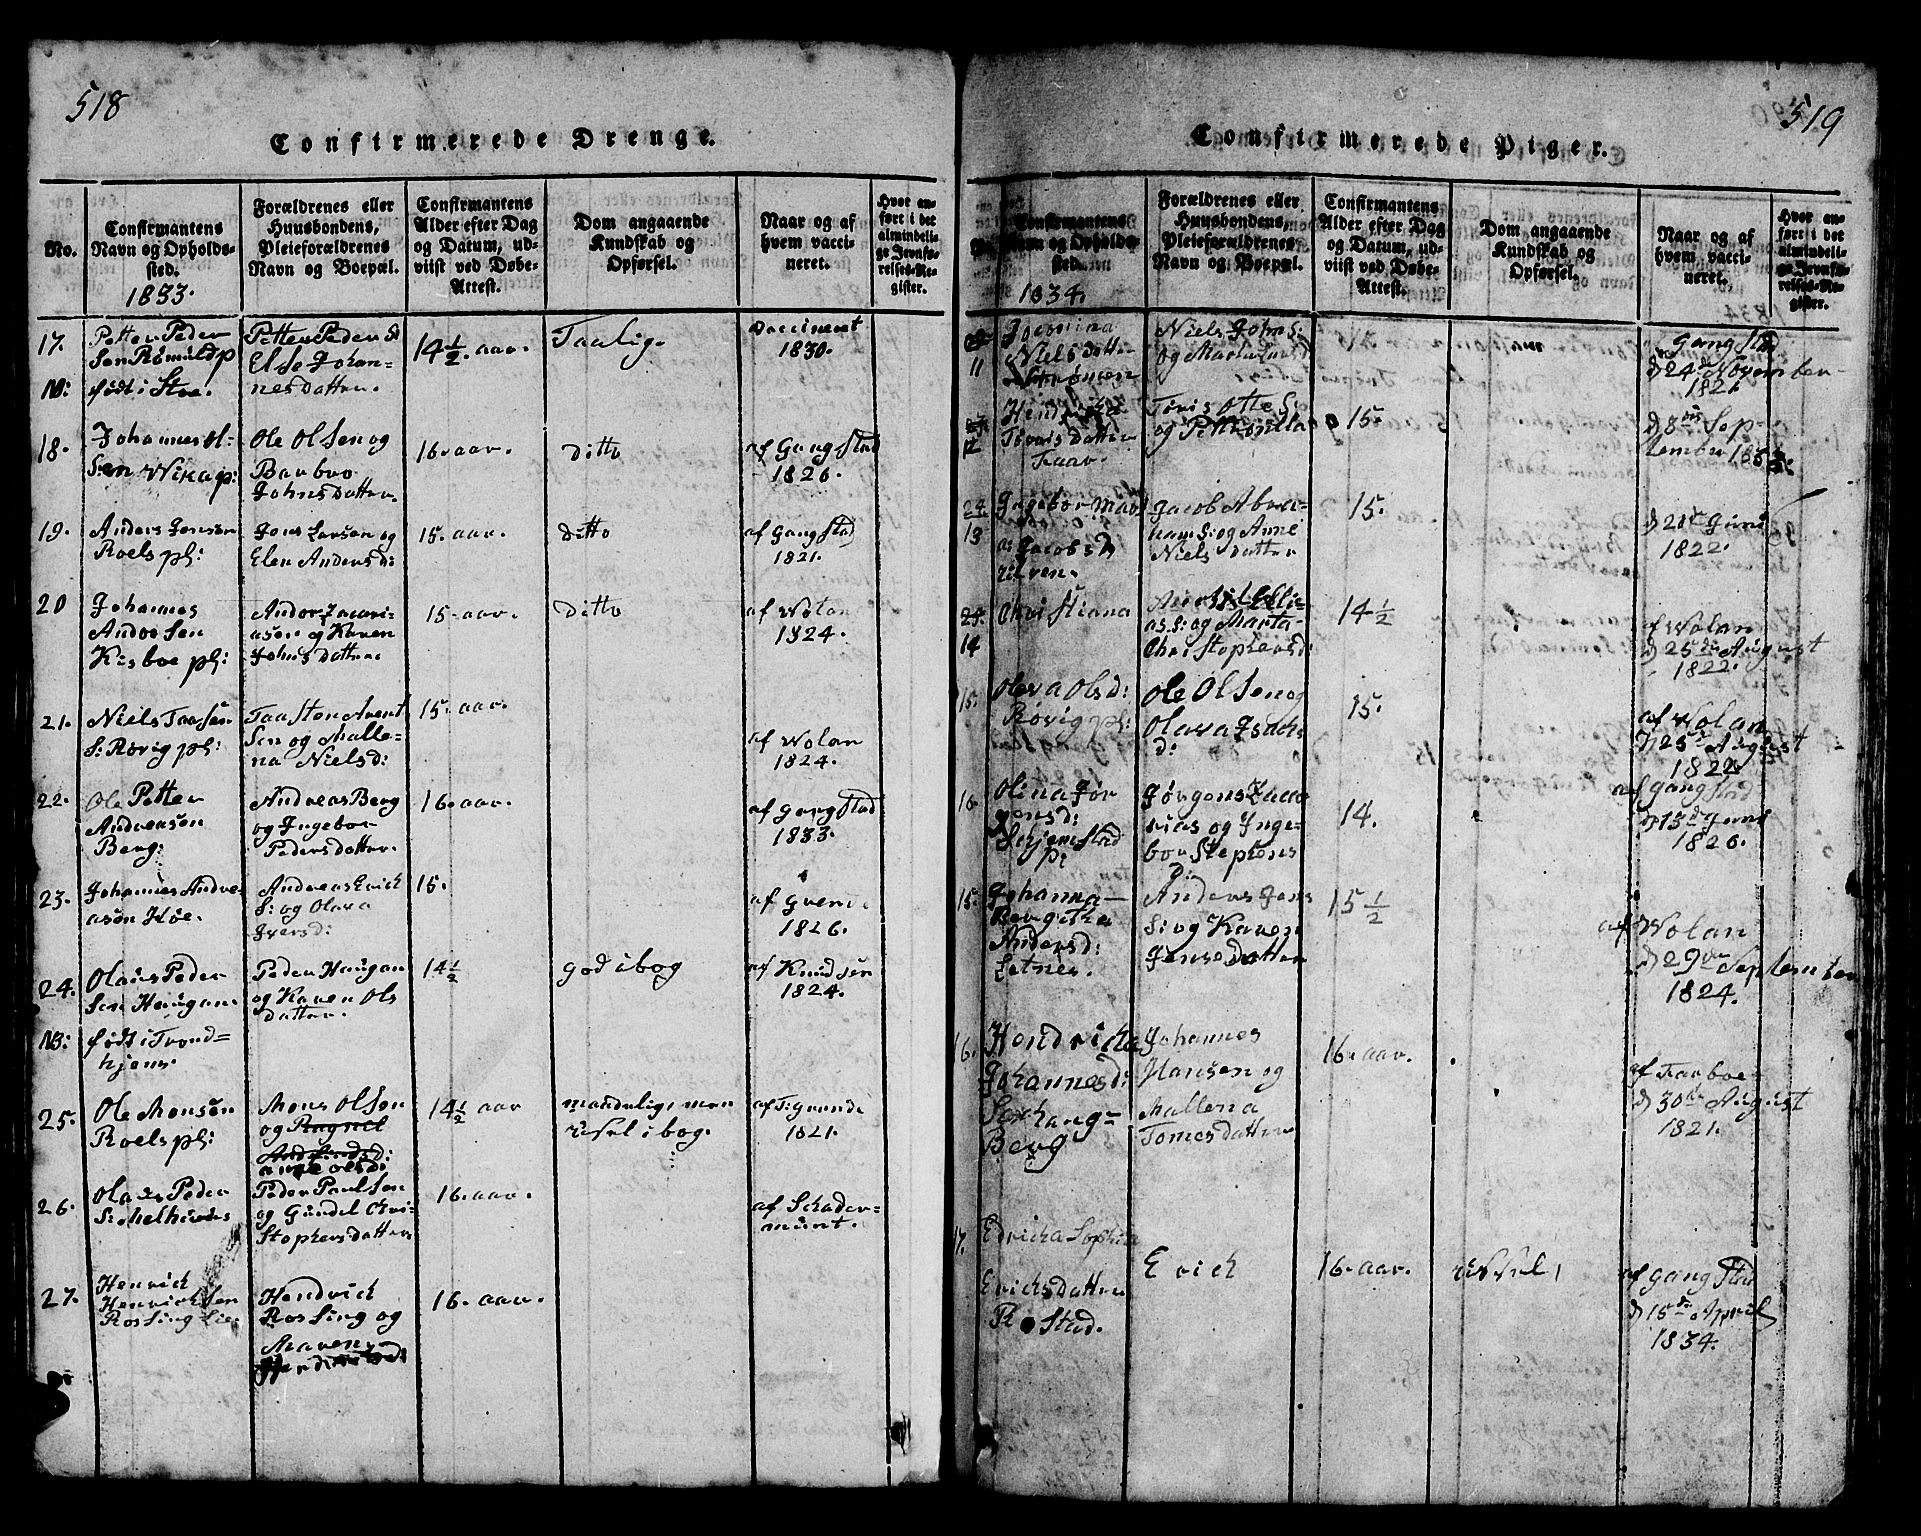 518
Confirmerede Drenge.
No.
Confirmantens
Navn og Opholds-
sted.
1833.
Forældrenes eller
Huusbondens,
Pleieforældrenes
Navn og Boepæl.
Confirmantens
Alder efter Dag
og Datum, ud-
viist ved Døbe-
Attest.
Dom angaaende
Kundskab og
Opførsel.
Naar og af
hvem vacci-
neret.
Hvor an-
ført i det
almindeli-
ge Jevnfø-
relses-Re-
gister.
17.
Petter Peder
Sen Rømuld p
N: født i Stoe.
Petter Peder S
Else Johan-
nesdatter.
14 1/2. aar.
Taalig.
vaccineret
1830.
18.
Johannes ol-
Sen Wika p:
Ole Olsen og
Barbro
Johns datter.
16. aar.
ditto
af Gangstad
1826.
19.
Anders Jensen
Roels pl:
Jens Larsen og
Elen Anders d:
15. aar.
ditto
af Gangstad
1821.
20
Johannes
Andor Sen
Kisboe pl:
Andor Zacari-
asen og Karen
Johns datter
15. aar.
ditto
af Wolan
1824.
21.
Niels Taa Sen
S: Røvig pl:
Taa Sten Arent
Sen og Malle-
na Niels d:
15. aar.
af Wolan
1824.
22.
Ole Petter
Andreasen
Berg:
Andreas Berg
og Ingebor
Peders datter.
16. aar.
af Gangstad
1833.
23.
Johannes Andre-
asen Høe.
Andreas Erick
S: og Olava
Ivers d:
15.
af
1826.
24.
Olaus Peder
Sen Haugan.
NB: født i Trond=
hjem.
Peder Haugan
og Karen Ols
datter.
14 1/2
god i bog
af Knudsen
1824.
25.
Ole Monsen
Roels pl:
Mons Olsen
og Ragnel
ane ols d:
14 1/2 aar
maadelig, men
ussel i bog.
af T: grande
1821.
26.
Olaus Peder
S: Melhuus
Peder Paulsen
og Gundel Chri-
Stophers datter
16. aar.
af Schader-
munt.
27.
Henrick
Henrick Sen
Rossing lie
Hendrick
Rossing og
Maren
16. aar.
519
Confirmerede Piger.
No.
Confirmantens
Navn og Opholds-
sted.
1834.
Forældrenes eller
Huusbondens,
Pleieforældrenes
Navn og Boepæl.
Confirmantens
Alder efter Dag
og Datum, ud-
viist ved Døbe-
Attest.
Dom angaaende
Kundskab og
Opførsel.
Naar og af
hvem vacci-
neret.
Hvor an-
ført i det
almindeli-
ge Jevnfø-
relses-Re-
gister.
11
Jocomina
Niels datter
Strømen
Niels Johns:
og Marta
Gangstad
d 24de November
1826
12
Hendricka
Tøris datter
Faar.
Tøris Otte S:
og Petternilla
15.
d 8de Sep-
tember
13
Ingebor Mar
a: Jacobs D
Jacob Abra-
ham S: og Ane
Niels datter
15.
d 21de Juni
1822.
14
Christiana
as S: og Marta
Christophers d:
14 1/2
af Wolan
d 25de August
1822.
15.
Olava Ols d:
Røvig pl:
Ole Olsen og
Olava Isachs
d:
15.
af Wolan
d 25de August
1822
16.
Olina Jør
gens d:
Schjemstad
pl
Jørgens Zaca
rias og Inge-
bor Stephens
d:
14.
af Gangstad
d 15de Juni
1826.
15.
Johanna
Bergitha
Anders d:
Letnes.
Anders Jens
S: og Karen
Jense datter
15 1/2
af Wolan
d 29de September
1824.
16.
Hendricka
Johannes d:
Saxhaug=
Berg
Johannes
Hansen og
Mallena
Tomes datter
16. aar.
af Faarboe
d 30te August
1821.
17.
Edricka Sophia
Ericks datter
Rostad.
Erick
16. aar.
ussel,
af Gangstad
d 15de April
1834.